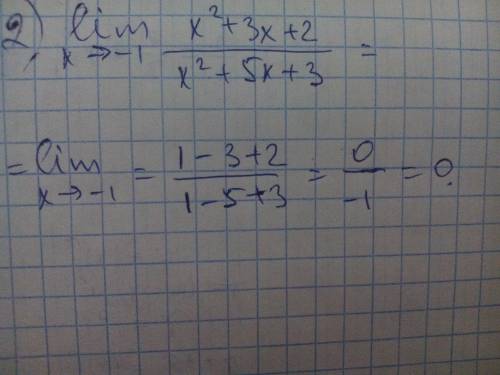 2) lim x→-1 (x²+3x+2)/(x²+5x+3) =
= lim x→-1 = (1-3+2)/(1-5+3) = 0/-1 = 0.